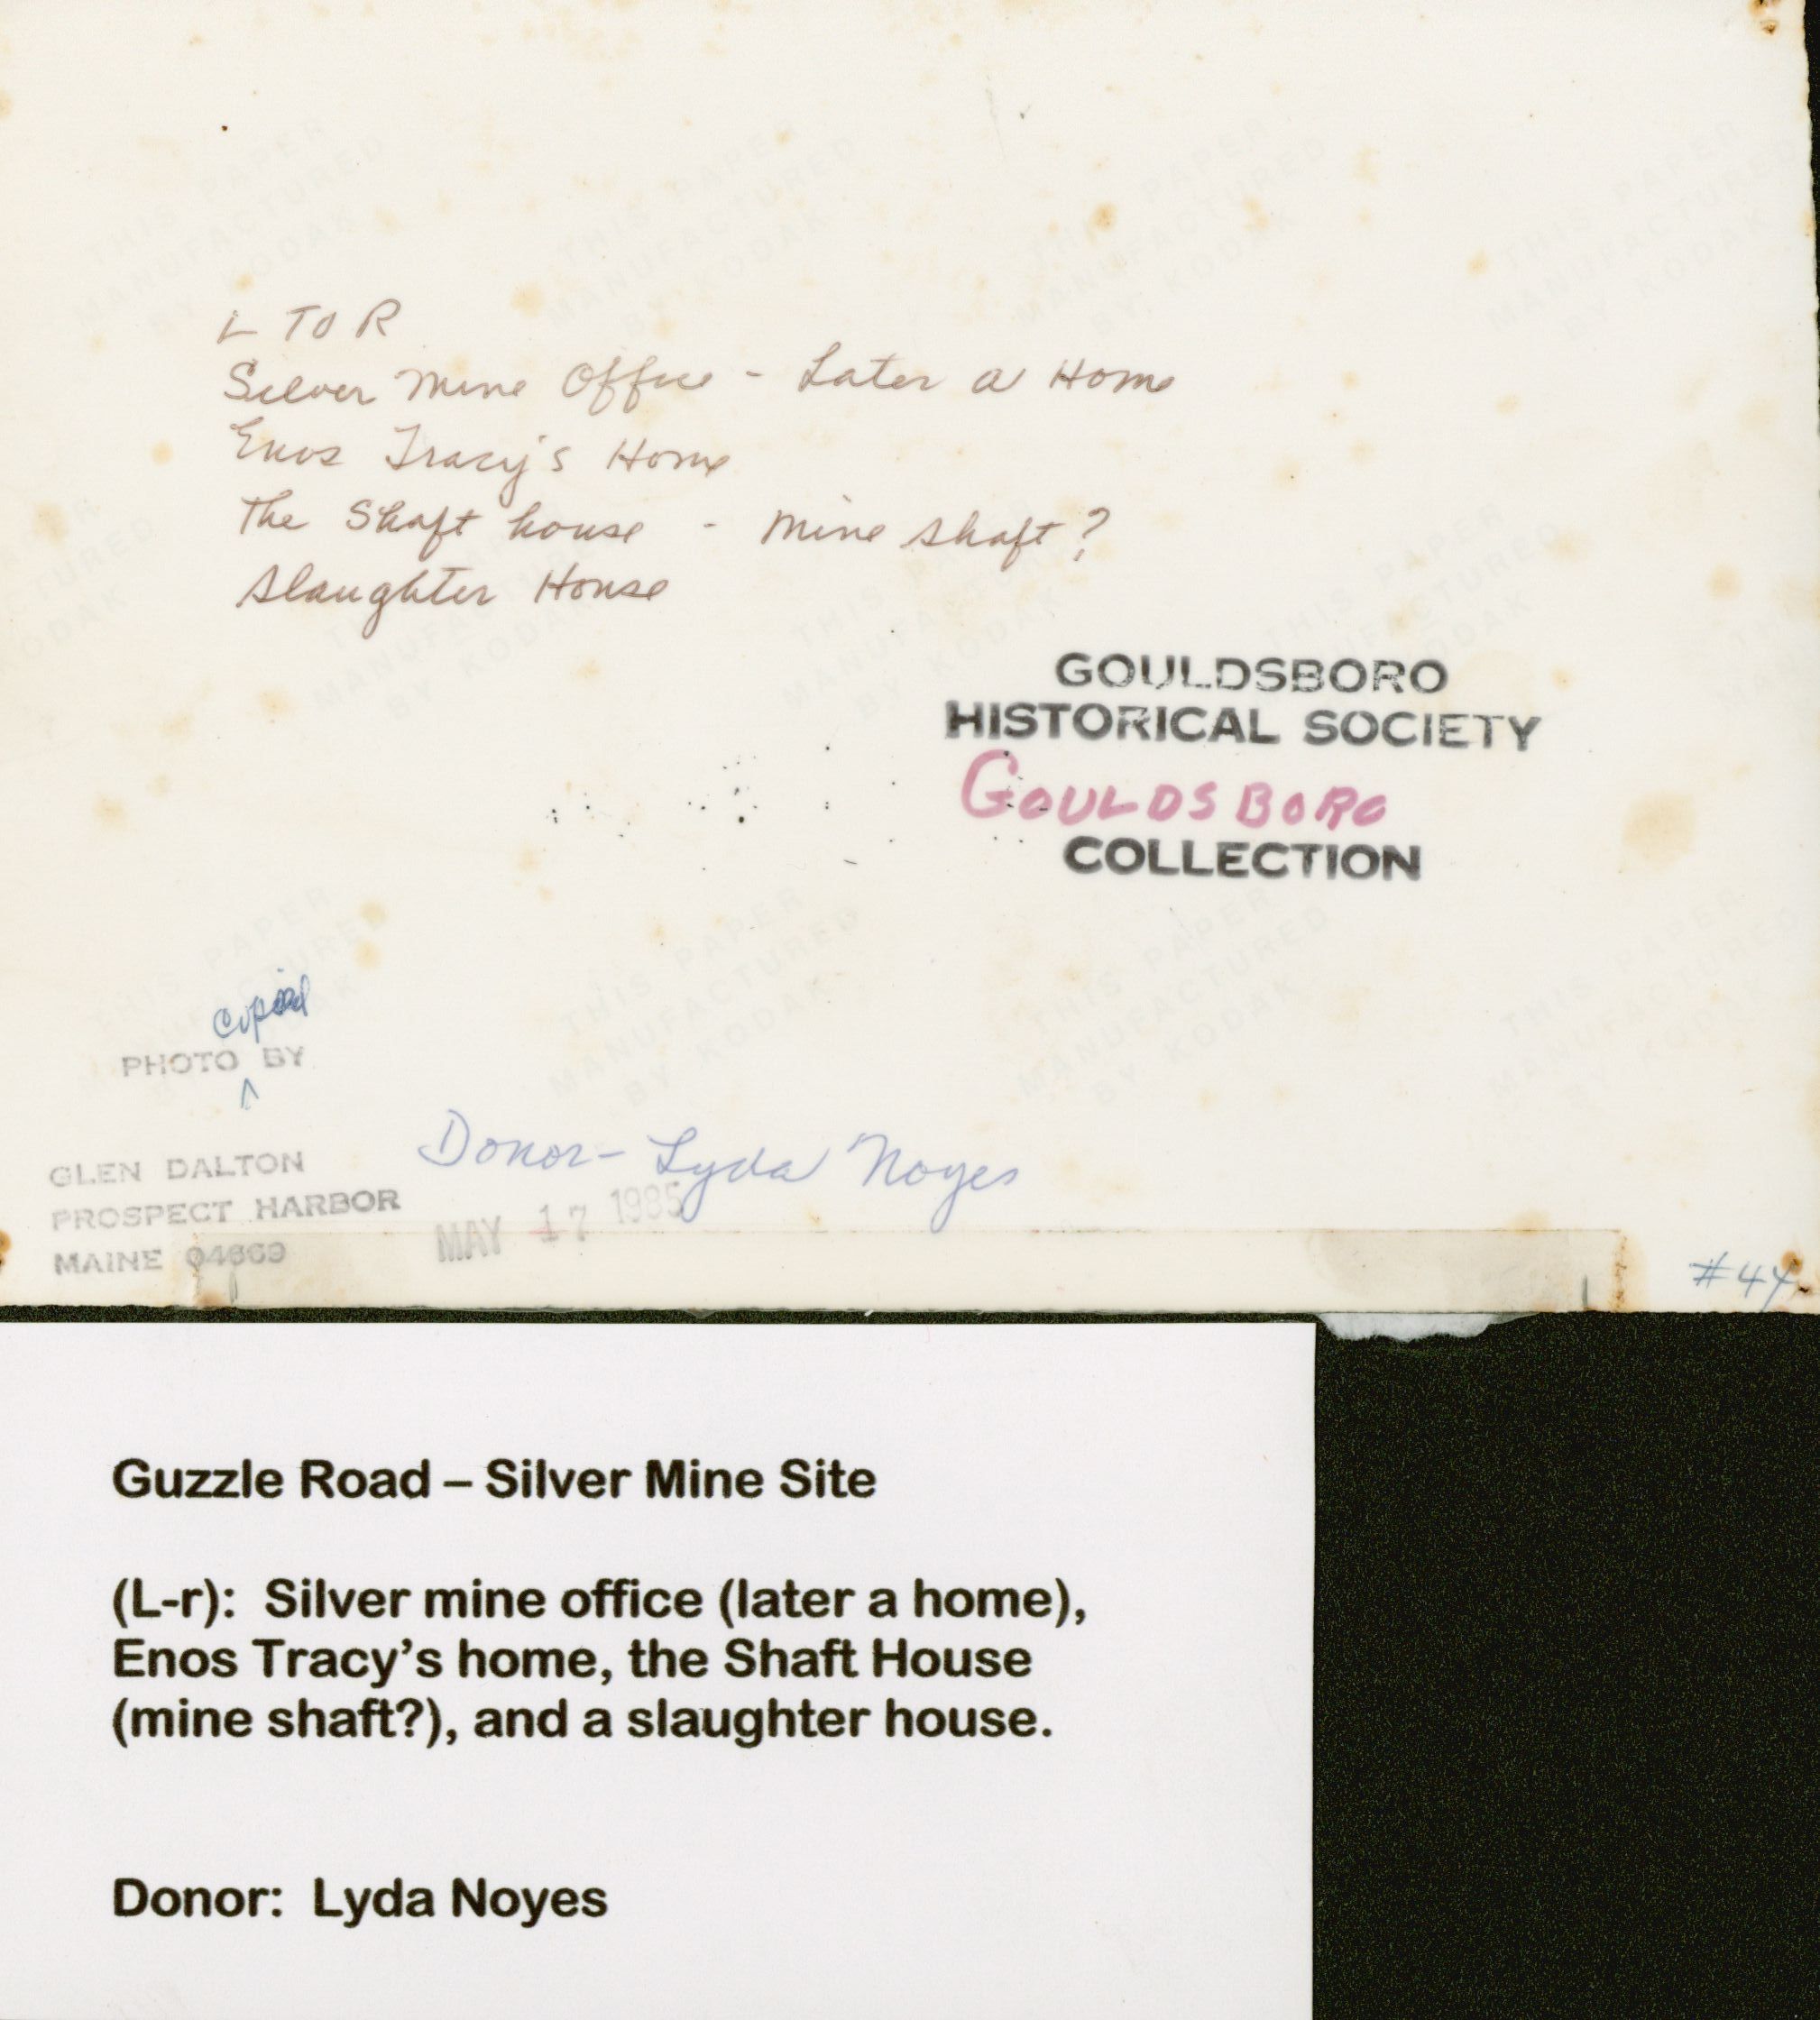 L TO R
Silver Mine Office - Later a Home
Enos Tracy's Home
The Shaft house - Mine shaft?
Slaughter House
GOULDSBORO
HISTORICAL SOCIETY
GOULDSBORO
COLLECTION
copied
PHOTO BY
^
GLEN DALTON
PROSPECT HARBOR
MAINE 04669
Donor - Lyda Noyes
MAY 17 1985
#44
THIS PAPER
MANUFACTURED
BY KODAK
Guzzle Road – Silver Mine Site
(L-r): Silver mine office (later a home),
Enos Tracy’s home, the Shaft House
(mine shaft?), and a slaughter house.
Donor: Lyda Noyes